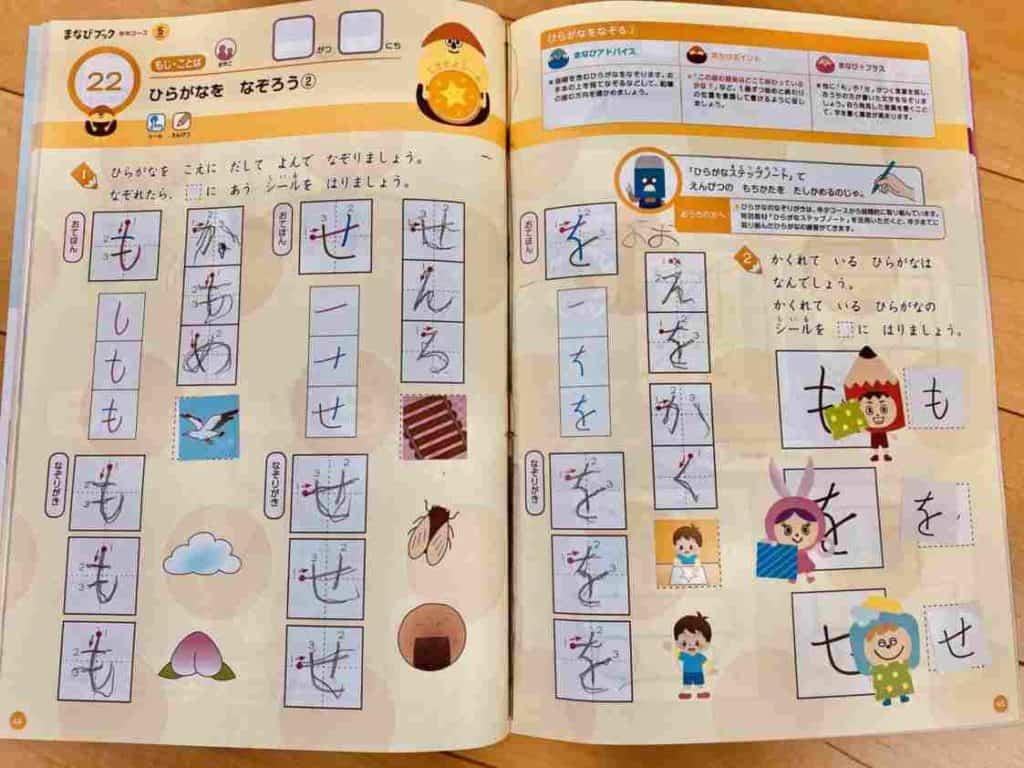 まなびブック
5
がつ
にち
22
もじ・ことば
ひらがなを なぞろう②
シール
えんぴつ
1
ひらがなを こえに だして よんで なぞりましょう。
なぞれたら、 に あう シールを はりましょう。
おてほん
も
か
も
め
し
も
も
おてほん
せ
せ
ん
ろ
一
ナ
せ
なぞりがき
も
も
も
なぞりがき
せ
せ
せ
44
ひらがなをなぞる2
まなびアドバイス
まなび+プラス
「ひらがなステップノート」で
えんぴつの もちかたを たしかめるのじゃ。
おうちの方へ
ひらがなのなぞりがきは、年少コースから段階的に取り組んでいます。
おてほん
を
お
え
を
か
く
一
ち
を
なぞりがき
を
を
を
2
かくれて いる ひらがなは
なんでしょう。
かくれて いる ひらがなの
シールを に はりましょう。
も
も
を
を
せ
せ
45